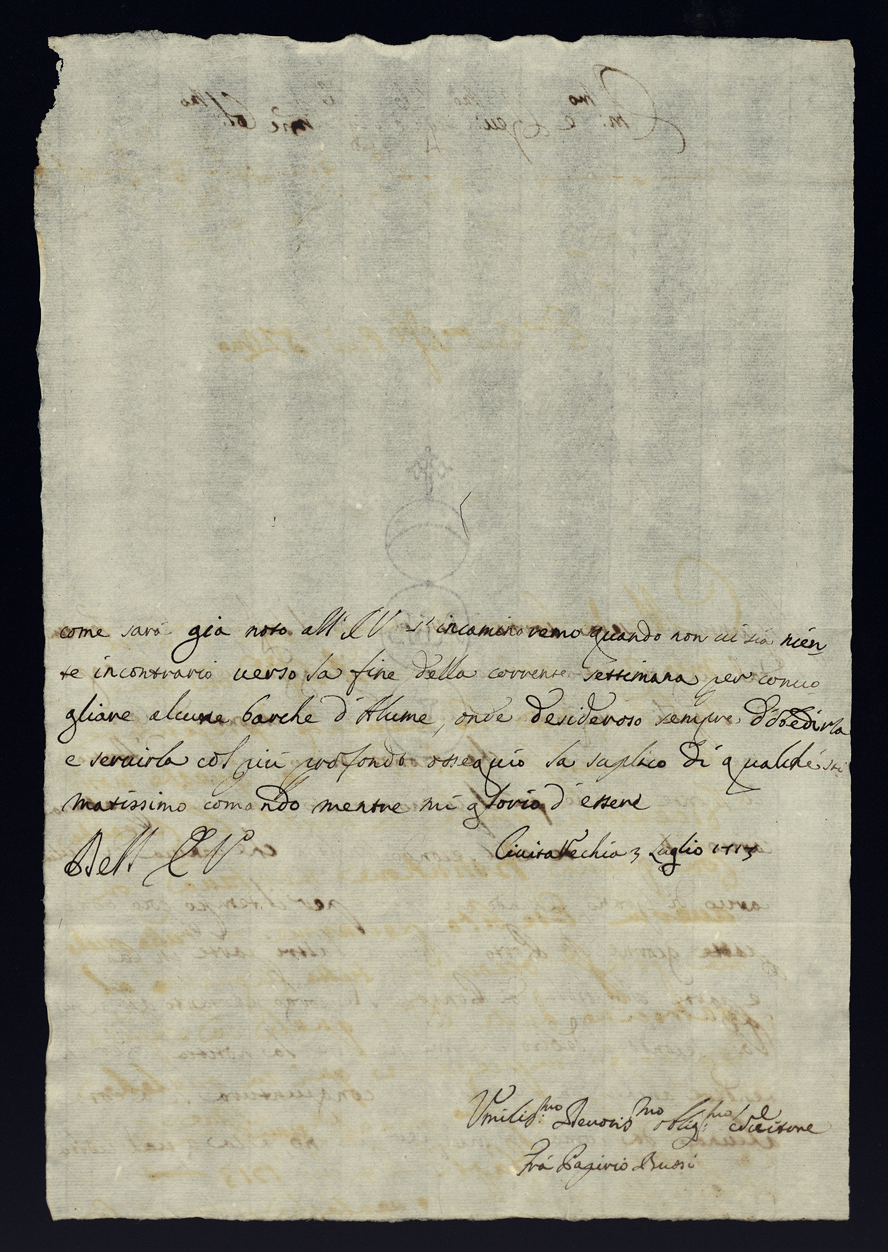 come sarà già noto all' EV s'incaminaremo quando non ui sia nien
te incontrario uerso la fine della corrente settimana per conuo
gliare alcune barche d'Alume, onde desideroso sempre d'obedirla
e seruirla col più profondo ossequio la suplico di qualche sti
matissimo comando mentre mi glorio d'essere
Dell' EV
Ciuita Vechia 3 Luglio 1713
Vmiliss:mo Deuotis:mo oblig:mo seruitore
Frà Papirio Bussi